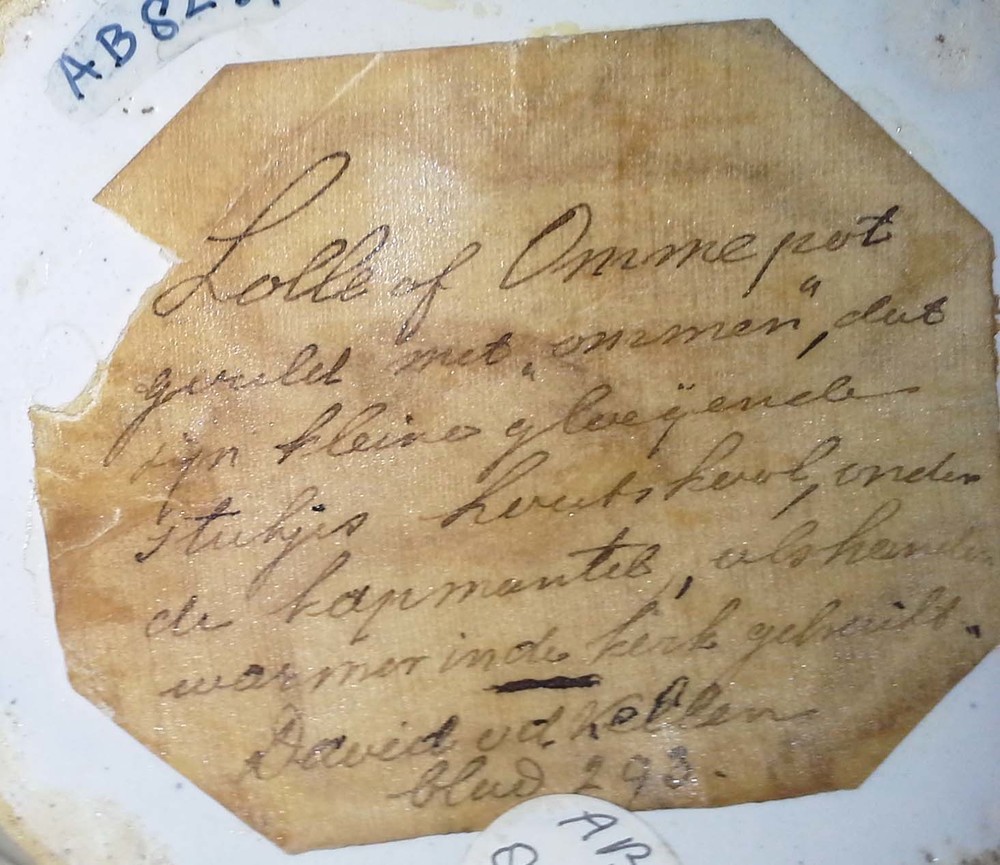 AB82
Lolle of Ommepot
gevuld met „ommen", dat
zijn kleine gloeÿende
stukjes houtskool, onder
de kapmantel, als handen
warmer in de kerk gebruikt.
David vd Kellen
blad 293.
AB
8